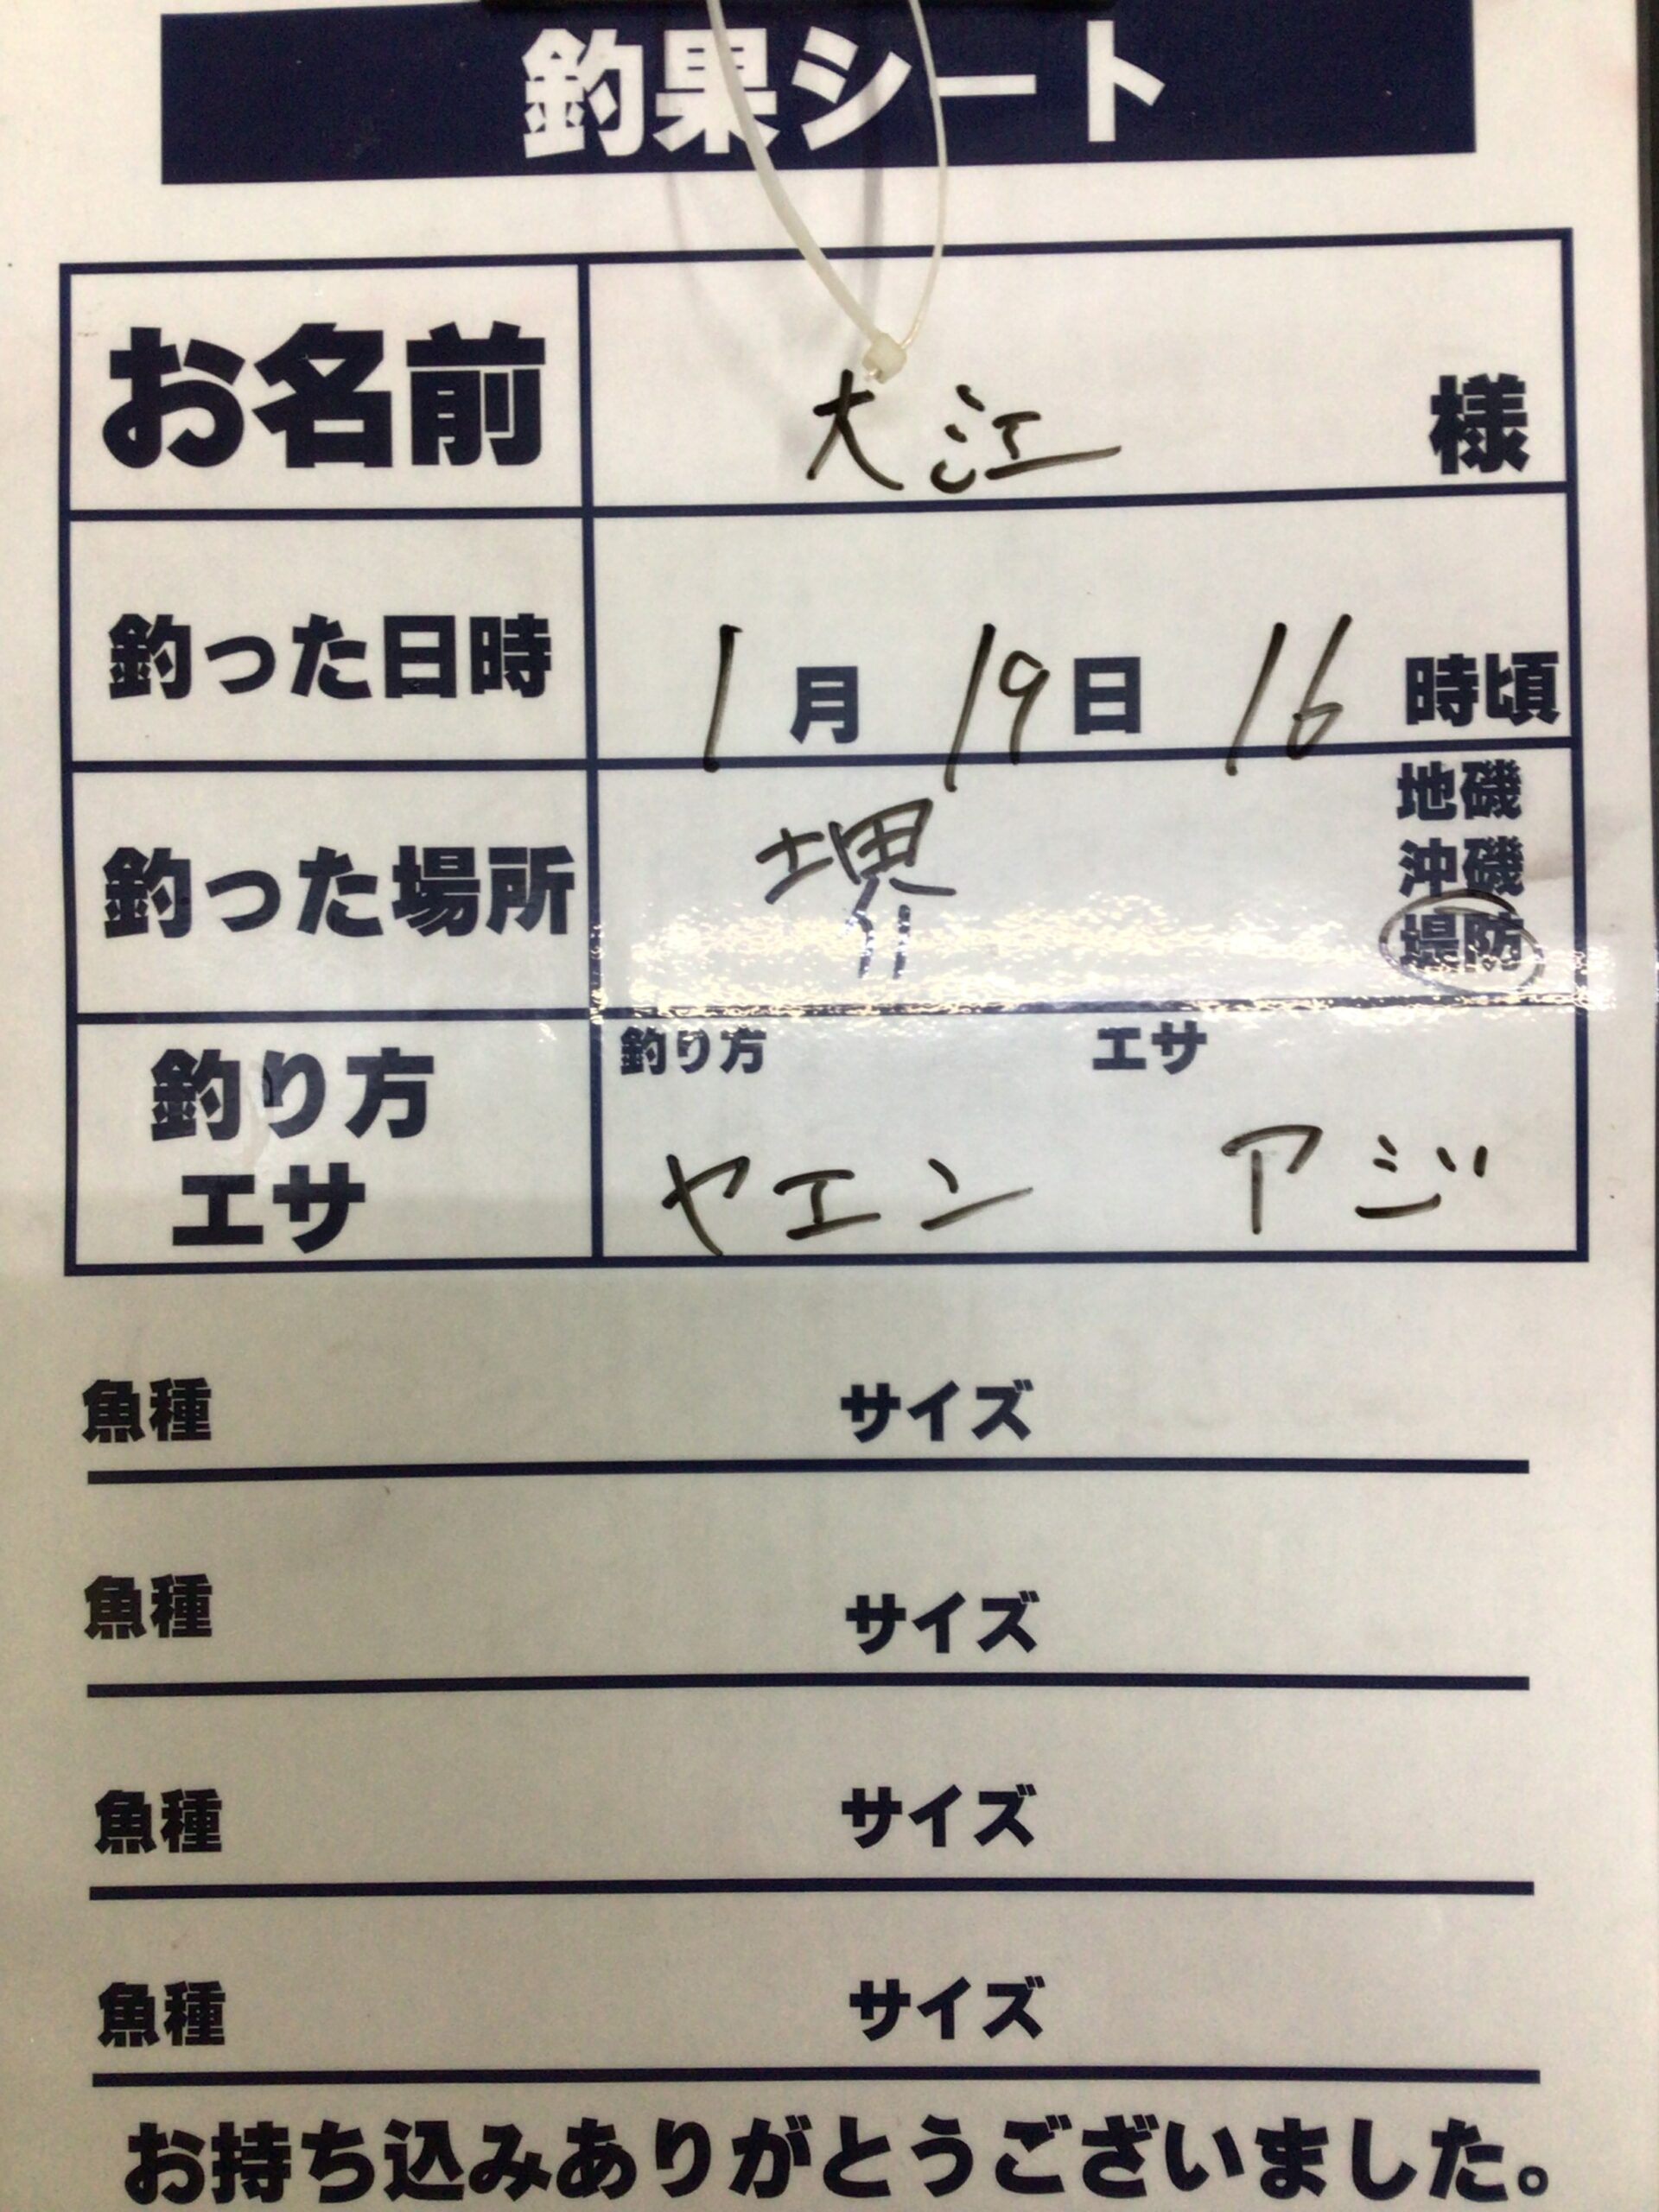 釣果シート
お名前 大江 様
釣った日時 1月19日16時頃
釣った場所 堺 地磯
沖磯
堤防
釣り方 エサ
釣り方
エサ
ヤエン アジ
魚種 サイズ
魚種 サイズ
魚種 サイズ
魚種 サイズ
お持ち込みありがとうございました。